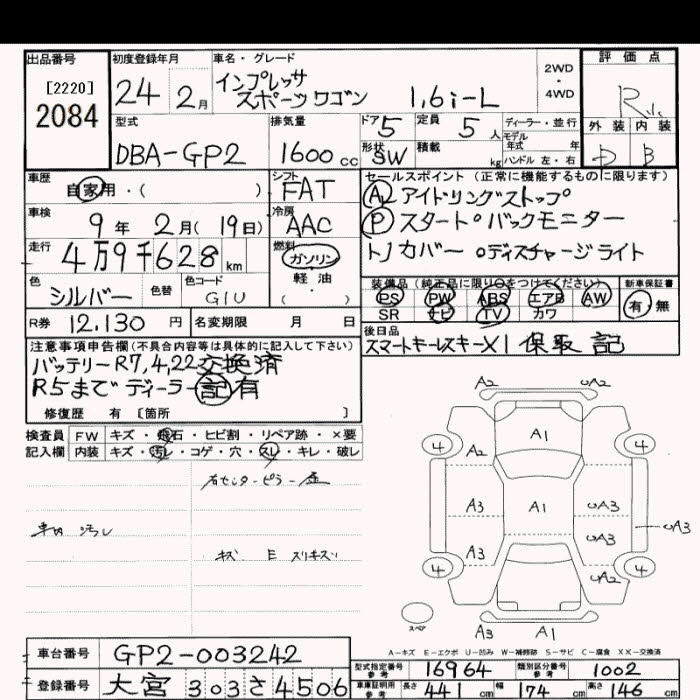 出品番号
[2220]
2084
初度登録年月
24 2月
車名・グレード
インプレッサ
スポーツワゴン 1,6i-L
2WD
・
4WD
評価点
R
外装 内装
D B
型式
DBA-GP2
排気量
1600cc
ドア 5
定員 5人
形状 SW
積載 kg
ディーラー・並行
モデル年式 年式
ハンドル 左・右
車歴
自家用・( )
シフト
FAT
車検
9年 2月(19日)
冷房
AAC
走行
4万9千628km
燃料
ガソリン
軽油
( )
色
シルバー
色替
色コード
G1U
R券 12,130円
名変期限 月 日
セールスポイント(正常に機能するものに限ります)
A2 アイドリングストップ
P スタート○バックモニター
トノカバー ○ディスチャージライト
装備品(純正品に限り○をつけてください)
PS PW ABS エアB AW
SR ナビ TV カワ
新車保証書
有・無
後日品
スマートキーレスキーX1 保取記
注意事項申告欄(不具合内容等は具体的に記入して下さい)
バッテリーR7,4,22交換済
R5まで ディーラー記有
修復歴 有 [箇所 ]
検査員
記入欄
FW キズ・飛石・ヒビ割・リペア跡・×要
内装 キズ・汚レ・コゲ・穴・スレ・キレ・破レ
右センターピラー
車内 汚レ
キズ E スリキズ
A2 uA2
A1
4 A2 4
A3 A1 uA3
uA3 uA3
A3
4 uA2 4
スペア
A3 A1
A-キズ E-エクボ U-凹み W-補修跡 S-サビ C-腐食 XX-交換済
車台番号 GP2-003242
登録番号 大宮 303 さ 4506
型式指定番号 参考 16964
類別区分番号 参考 1002
車庫証明用 参考 長さ 44 cm 幅 174 cm 高さ 146 cm